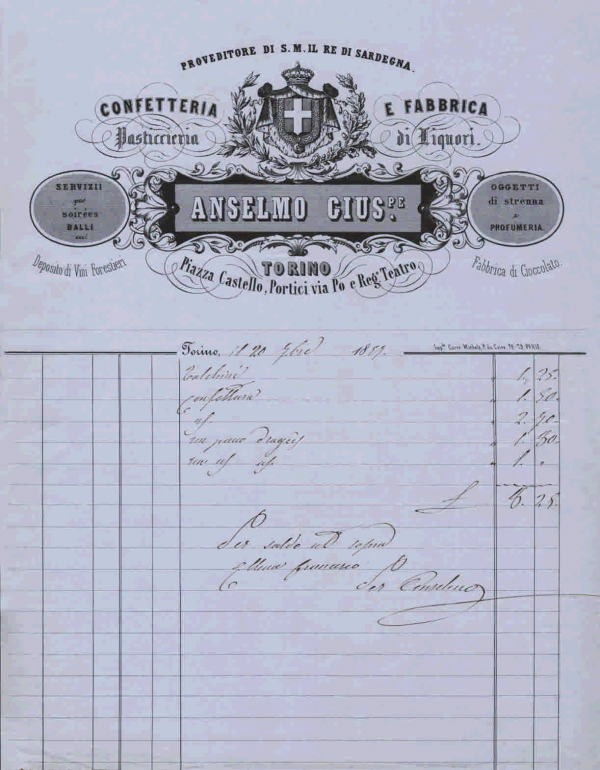 PROVEDITORE DI S. M. IL RE DI SARDEGNA.
CONFETTERIA E FABBRICA
Pasticcieria di Liquori.
SERVIZII
per
soirées
BALLI
ANSELMO GIUS.PE
OGGETTI
di strenna
e
PROFUMERIA.
Deposito di Vini Forestieri
TORINO
Fabbrica di Cioccolato.
Piazza Castello, Portici via Po e Reg° Teatro
Torino, il 20 1857.
1. 25.
Confettura 1. 50.
id. 2.
un dragées 1.
un id. id. 1. "
25.
Per saldo sopra
Per Anselmo